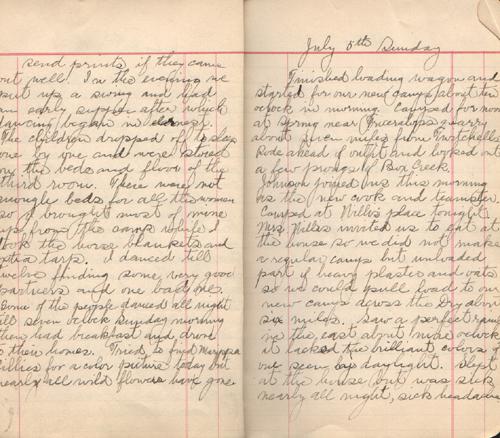 send prints if they came
out well. In the evening we
put up a swing and had
an early supper after which
dancing began in earnest.
The children dropped off to sleep
one by one and were stored
on the beds and floor of the
third room. There were not
enough beds for all the women
so I brought most of mine
up from the camp while I
took the horse blankets and
extra tarp. I danced till
twelve finding some very good
partners and one bad one.
Some of the people danced all night
till seven oclock Sunday morning
then had breakfast and drove
to their homes. Tried to find Mariposa
lillies for a color picture today but
nearly all wild flowers have gone.
July 5th Sunday
Finished loading wagon and
started for our new camp about ten
oclock in morning. Camped for noon
at spring near Triceratops quarry
about seven miles from
Rode ahead of outfit and looked on
a few prongs of Buck Creek.
Johnson joined us this morning
as the new cook and teamster.
Camped at Willis place tonight.
Mrs Willis invited us to eat at
the house so we did not make
a regular camp but unloaded
part of heavy plastic and oats
so we could pull load to our
new camp across the Dry about
six miles. Saw a perfect rain
in the east about nine oclock
it lacked the brilliant colors of
one seen by daylight. Slept
at the house but was sick
nearly all night, sick headache